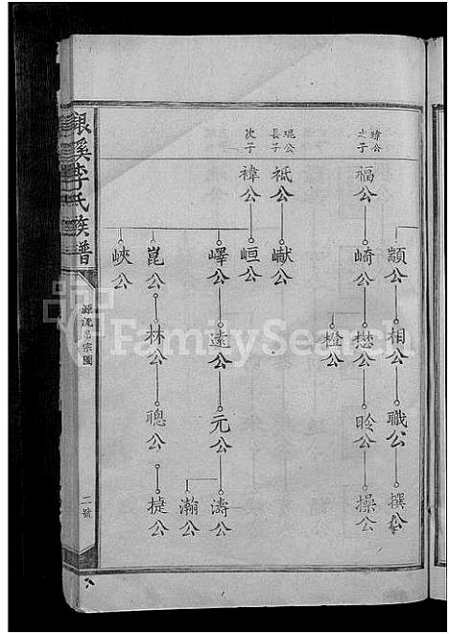 禕公
之子
福公
琨公
長子
祗公
次子
禕公
顓公
崎公
巘公
峘公
嶧公
崑公
峽公
相公
懋公
橙公
遠公
林公
職公
昤公
元公
聰公
撰公
操公
濤公
瀚公
捷公
銀溪李氏族譜
源流總宗圖
二號
FamilySearch